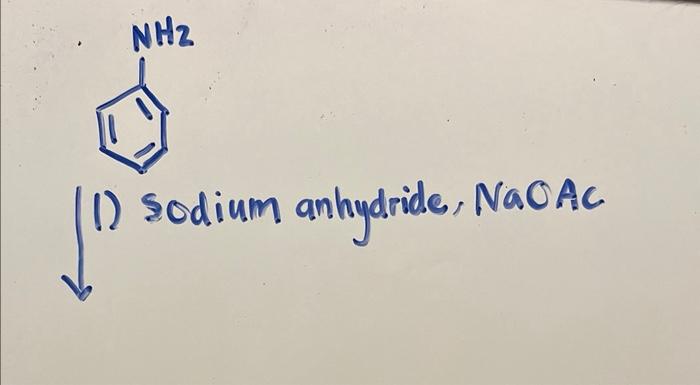 NH2
1) Sodium anhydride, NaOAc